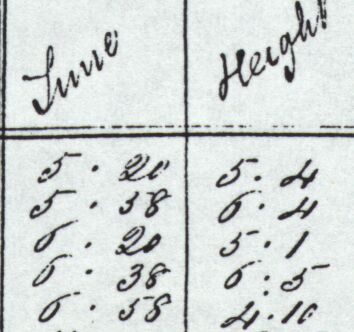 Time Height
5 . 20 5 . 4
5 . 58 6 . 4
6 . 20 5 . 1
6 . 38 6 . 5
6 . 58 4 . 10